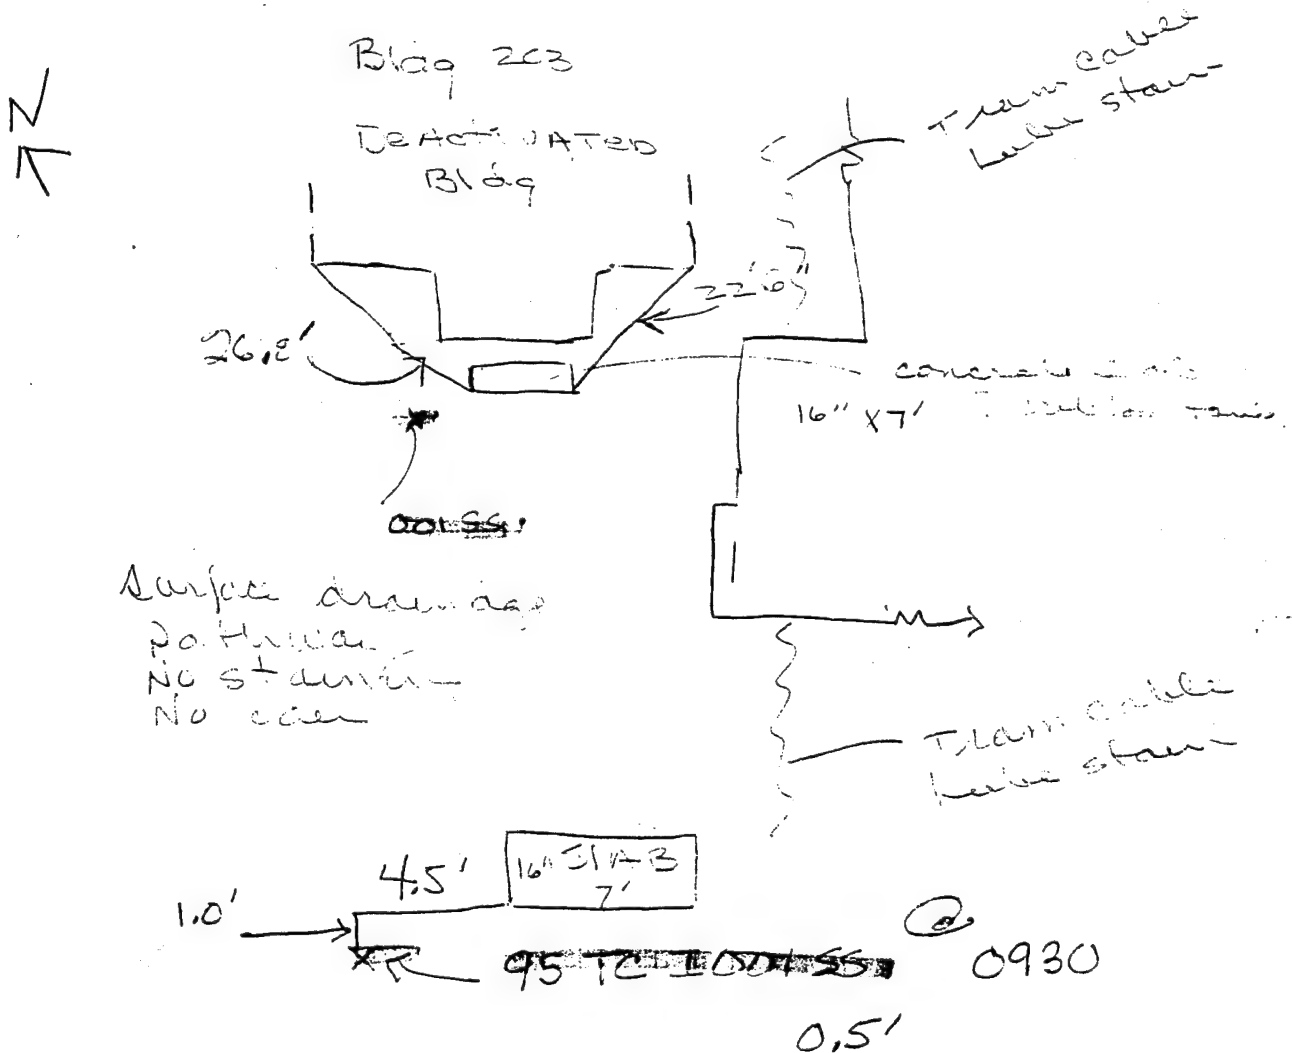 N
Bldg 203
DeActivATED
Bldg
Tram cable
lube stain
22'6"
26.2'
concrete
16" X 7'
001SS
Surface drainage
Pathway
No staining
No odor
Tram cable
lube stain
16" SLAB
7'
4.5'
1.0'
95 TC I 001 SS @ 0930
0.5'